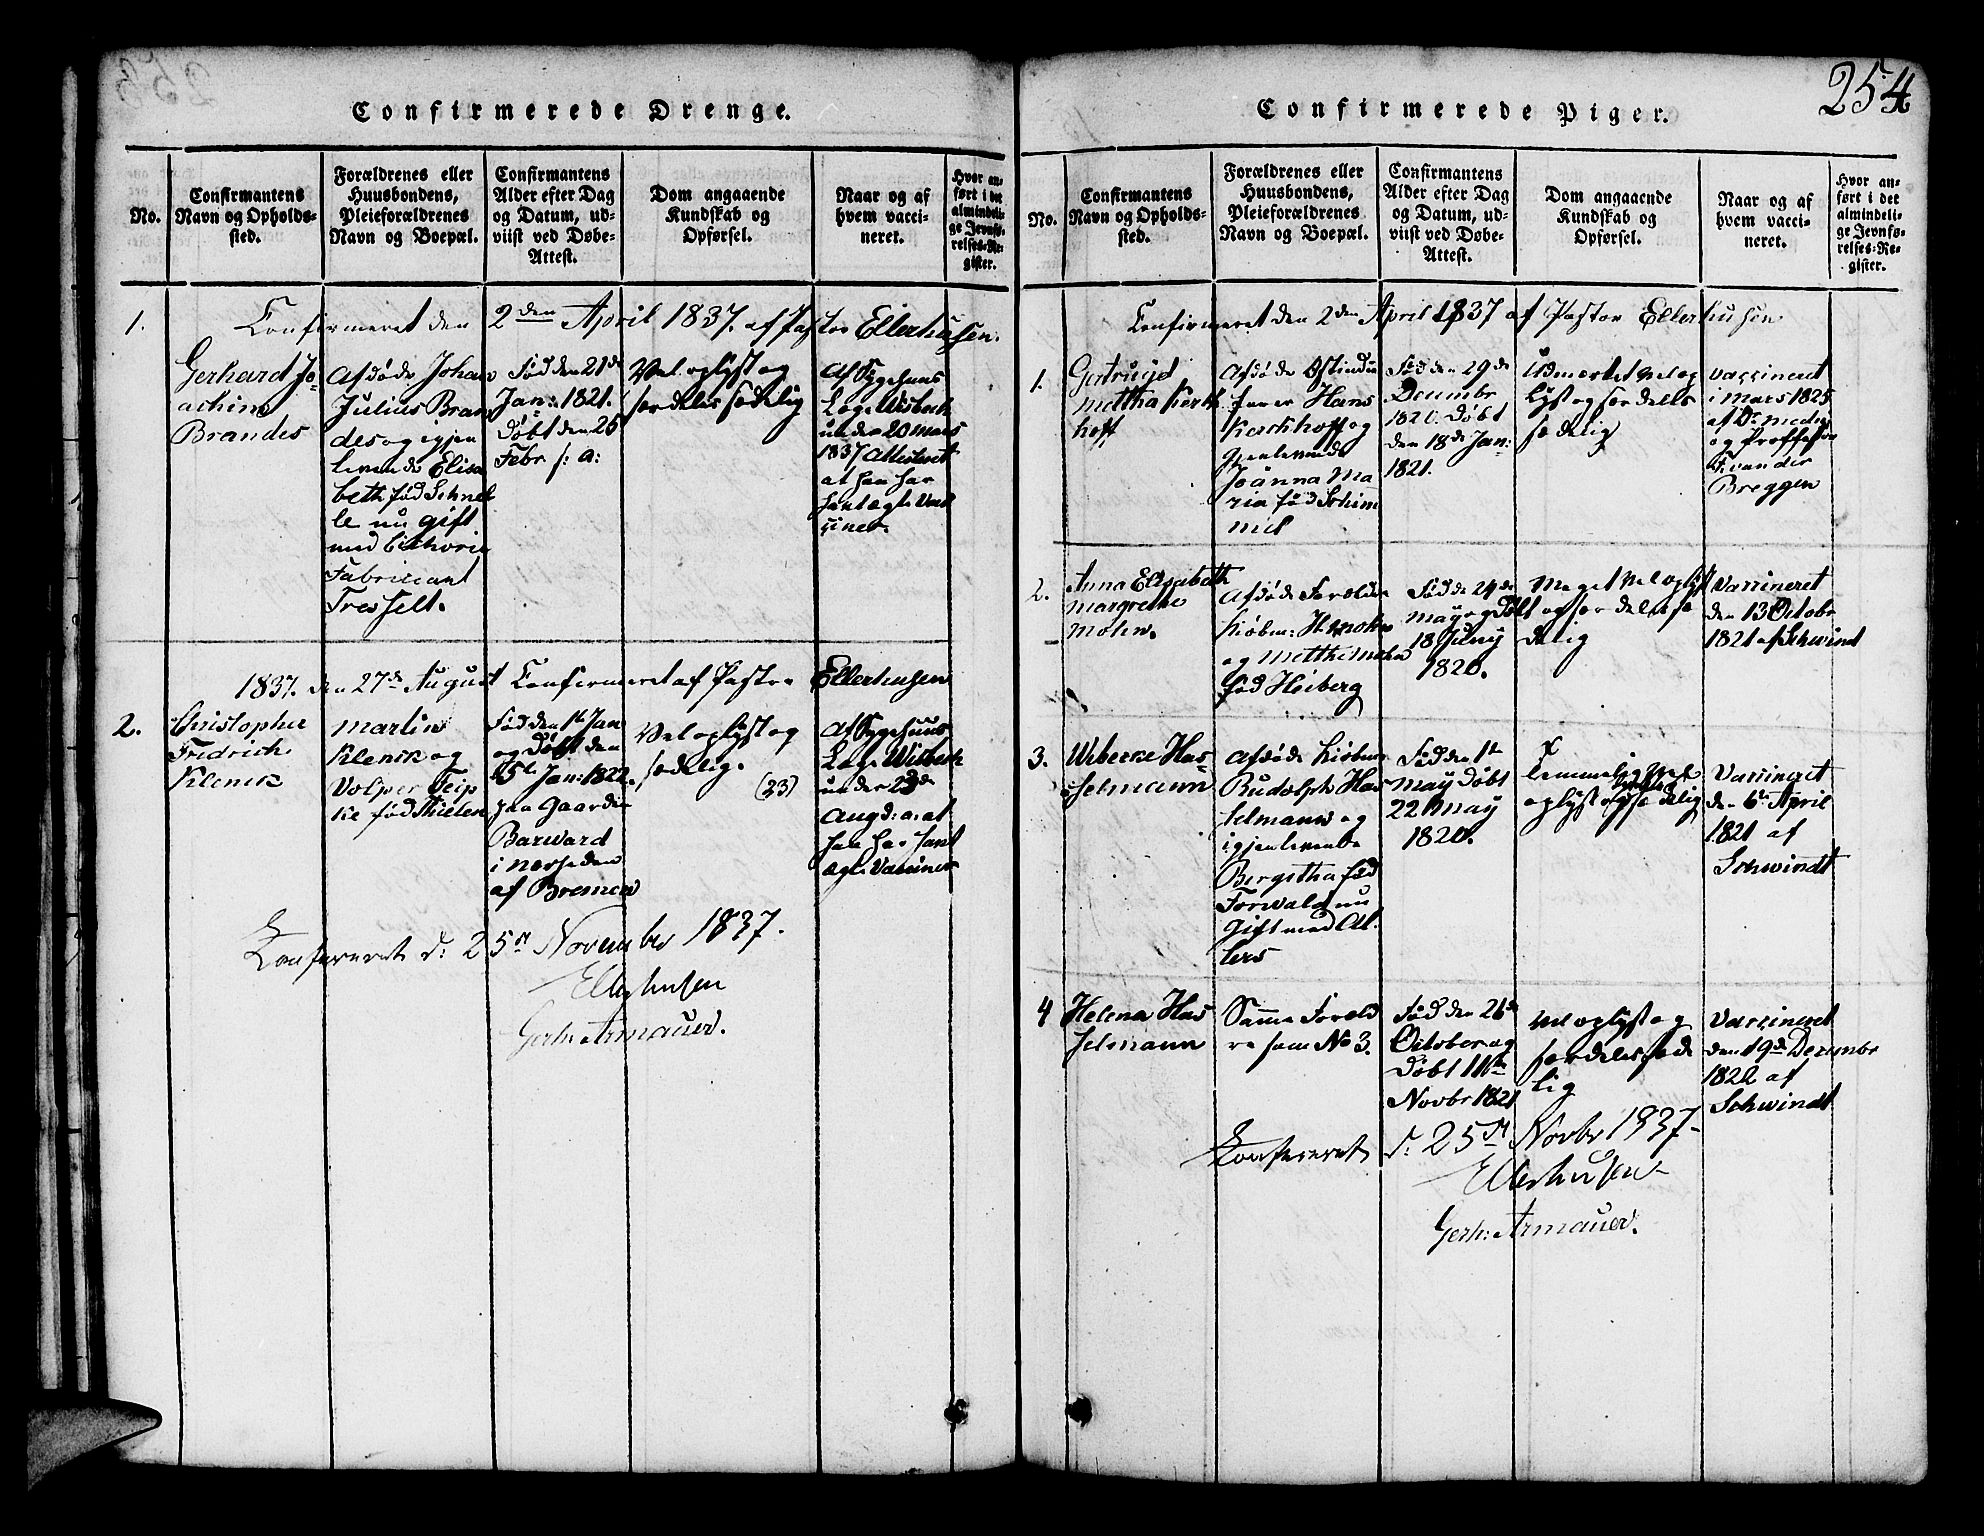 254
Confirmerede Drenge.
No.
Confirmantens
Navn og Opholds-
sted.
Forældrenes eller
Huusbondens,
Pleieforældrenes
Navn og Boepæl.
Confirmantens
Alder efter Dag
og Datum, ud-
viist ved Døbe-
Attest.
Dom angaaende
Kundskab og
Opførsel.
Naar og af
hvem vacci-
neret.
Hvor an-
ført i det
almindeli-
ge Jevnfø-
relses-Re-
gister.
Confirmeret den 2den April 1837. af Pastor Ellerhusen.
1.
Gerhard Jo-
achim
Brandes
Afdøde Johan
Julius Bran
des og igjen
levende Elisa
beth fød Schnel
le nu gift
med Cichorie
Fabricant
Tresselt.
Fød den 21de
Jan: 1821.
Døbt den 25
Febr s: a:
Vel oplyst og
særdeles sædelig
Af Sygehuus
Læge Wisbech
under 20 Mars
1837 Attesteret
at han har
havt ægte Vac
ciner.
1837. den 27de August Confirmeret af Pastor Ellerhusen
2.
Christopher
Fridrich
Klenck
Martin
Klenck og
Volper Feip
ke fød Thielen
Fød den 1te Jan
og Døbt den
15de Jan: 1822.
paa Gaarden
Barward
i nærheden
af Bremen
Vel oplyst og
sædelig.
(23)
Af Sygehuus
Læge Wisbech
under 23de
Aug: d: a: at
han har havt
ægte Vacciner
Confereret d: 25de November 1837.
Ellerhusen
Gerh: Armauer.
Confirmerede Piger.
No.
Confirmantens
Navn og Opholds-
sted.
Forældrenes eller
Huusbondens,
Pleieforældrenes
Navn og Boepæl.
Confirmantens
Alder efter Dag
og Datum, ud-
viist ved Døbe-
Attest.
Dom angaaende
Kundskab og
Opførsel.
Naar og af
hvem vacci-
neret.
Hvor an-
ført i det
almindeli-
ge Jevnfø-
relses-Re-
gister.
Confirmeret den 2den April 1837 af Pastor Ellerhusen
1.
Gertruyd
Mettha Kerk
hoff
Afdøde Ostindie
farer Hans
Kerckhoff og
gjenlevende
Joanna Ma
ria fød Schim
mel
Fød den 29de
Decembr
1820. Døbt
den 18de Jan:
1821.
Udmerket vel op
lyst og særdeles
sædelig
Vaccineret
i Mars 1825
af Dr. Med:
og Proffessor
F. van der
Breggen
2.
Anna Elisabeth
Margrethe
Mohn.
Afdøde Forældre
Kiøbm: H. Mohn
og Metthe Mohn
fød Heiberg
Fød den 24de
May og Døbt
18 Juny
1820.
Meget vel oplyst
og særdeles sæ
delig
Vaccineret
den 13 Octobr
1821 af Schwindt
3.
Wibecke Has-
selmann
Afdøde Kiøbm:
Rudolph Has
selmann og
igjenlevende
Bergitha fød
Forwald nu
Gift med Al-
lers
Fød den 1te
May Døbt
22 May
1820.
Temmelig vel
oplyst og sædelig
Vaccineret
den 6te April
1821 af
Schwindt
4
Helena Has
selmann
Samme Foreld
re som No 3.
Fød den 26de
October og
Døbt 11te
Novbr 1821
Vel oplyst og
særdeles sæde
lig
Vaccineret
den 19de Decembr
1822 af
Schwindt
Confereret d: 25de Novbr 1837-
Ellerhusen
Gerh: Armauer.